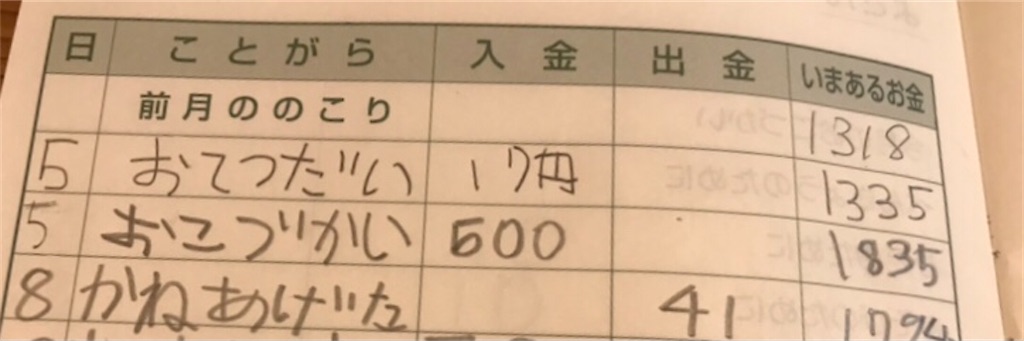 日 ことがら 入金 出金 いまあるお金
前月ののこり 1318
5 おてつだい 17円 1335
5 おこづかい 500 1835
8 かねあげだ 41 1794